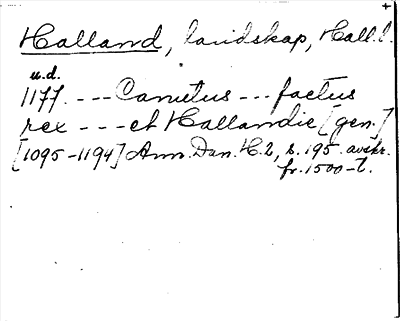 +
Halland, landskap, Hall.l.
u.d.
1177. --- Canutus --- factus
rex --- et Hallandie [gen.]
[1095-1194] Ann. Dan. H. 2, s. 195. avskr.
fr. 1500-t.